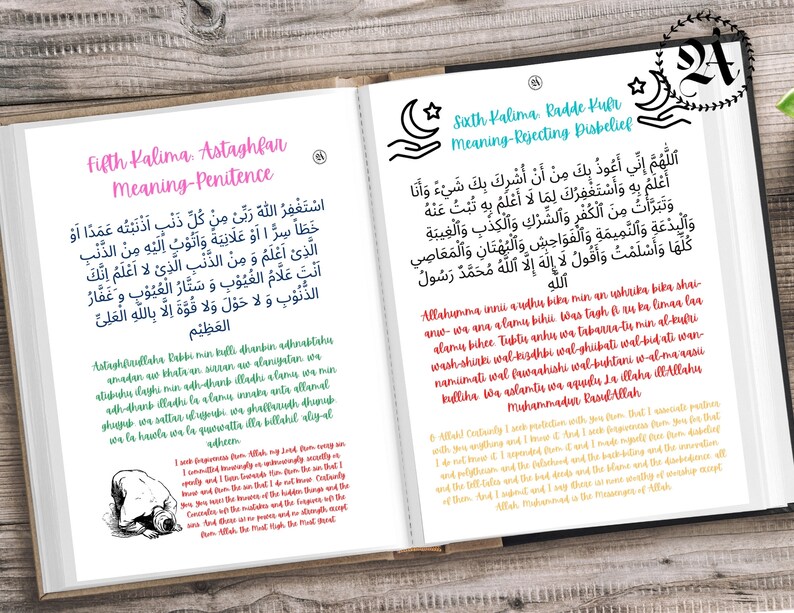 Fifth Kalima: Astaghfar
Meaning-Penitence
اَسْتَغْفِرُ اللّٰهَ رَبِّىْ مِنْ كُلِّ ذَنْۢبٍ اَذْنَبْتُه عَمَدًا اَوْ
خَطَأً سِرًّا اَوْ عَلَانِيَةً وَّاَتُوْبُ اِلَيْهِ مِنَ الذَّنْۢبِ
الَّذِىْ اَعْلَمُ وَ مِنَ الذَّنْۢبِ الَّذِىْ لَا اَعْلَمُ اِنَّكَ
اَنْتَ عَلَّامُ الْغُيُوْبِ وَ سَتَّارُ الْعُيُوْبِ وَ غَفَّارُ
الذُّنُوْبِ وَ لَا حَوْلَ وَلَا قُوَّةَ اِلَّا بِاللّٰهِ الْعَلِىِّ
الْعَظِيْمِ
Astaghfirullaha Rabbi min kulli dhanbin adhnabtahu
amadan aw khata'an, sirran aw alaniyatan, wa
atubuhu ilayhi min adh-dhanb illadhi a'lamu, wa min
adh-dhanb illadhi la a'lamu, innaka anta allamal
ghuyub, wa sattar ul'uyoubi, wa ghaffarudh dhunub,
wa la hawla wa la quwwatta illa billahil 'aliy-al
'adheem
I seek forgiveness from Allah, my Lord, from every sin
I committed knowingly or unknowingly, secretly or
openly, and I turn towards Him from the sin that I
know and from the sin that I do not know. Certainly
You, You were the knower of the hidden things and the
Concealer of the mistakes and the Forgiver of the
sins. And there is no power and no strength except
from Allah, the Most High, the Most Great
Sixth Kalima: Radde Kufr
Meaning-Rejecting Disbelief
ٱللَّٰهُمَّ إِنِّي أَعُوذُ بِكَ مِنْ أَنْ أُشْرِكَ بِكَ شَيْءً وَأَنَا
أَعْلَمُ بِهِ وَأَسْتَغْفِرُكَ لِمَا لَا أَعْلَمُ بِهِ تُبْتُ عَنْهُ
وَتَبَرَّأَتُ مِنَ ٱلْكُفْرِ وَٱلشِّرْكِ وَٱلْكِذْبِ وَٱلْغِيبَةِ
وَٱلْبِدْعَةِ وَٱلنَّمِيمَةِ وَٱلْفَوَاحِشِ وَٱلْبُهْتَانِ وَٱلْمَعَاصِي
كُلِّهَا وَأَسْلَمْتُ وَأَقُولُ لَا إِلَٰهَ إِلَّا ٱللَّهُ مُحَمَّدٌ رَسُولُ
ٱللَّهِ
Allahumma innii a'udhu bika min an ushrika bika shai-
anw- wa ana a'lamu bihii. Was tagh fi ru ka limaa laa
alamu bihee. Tubtu anhu wa tabarra-tu min al-kufri
wash-shirki wal-kizdhbi wal-ghiibati wal-bid'ati wan-
namiimati wal fawaahishi wal-buhtani w-al-ma'aasii
kulliha. Wa aslamtu wa aquulu La illaha illAllahu
Muhammadur RasulAllah
O Allah! Certainly I seek protection with you from, that I associate partner
with you anything and I know it. And I seek forgiveness from you for that
I do not know it. I repended from it and I made myself free from disbelief
and polytheism and the falsehood and the back-biting and the innovation
and the tell-tales and the bad deeds and the blame and the disobedience, all
of them. And I submit and I say there is none worthy of worship except
Allah, Muhammad is the Messenger of Allah